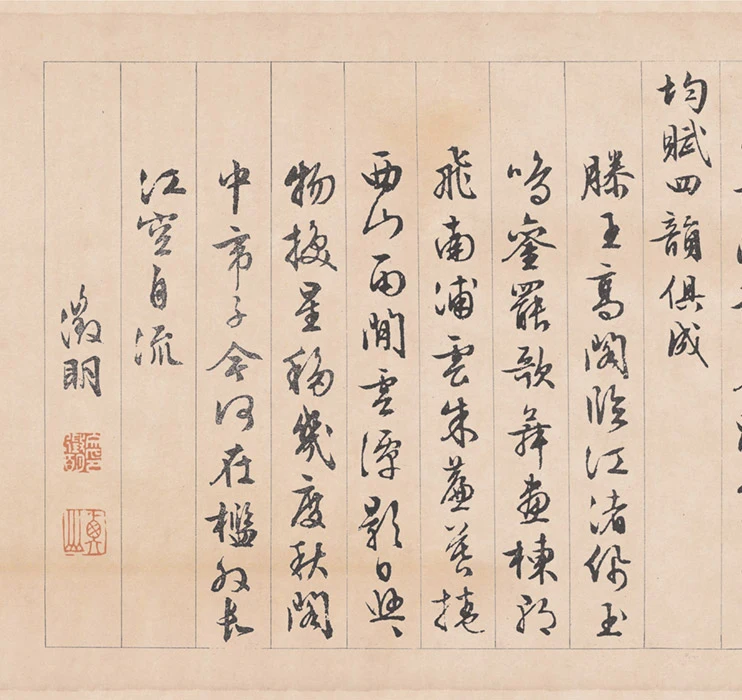 均賦四韻俱成
滕王高閣臨江渚佩玉
鳴鑾罷歌舞畫棟朝
飛南浦雲朱簾暮捲
西山雨閒雲潭影日悠〻
物換星移幾度秋閣
中帝子今何在檻外長
江空自流
徵明